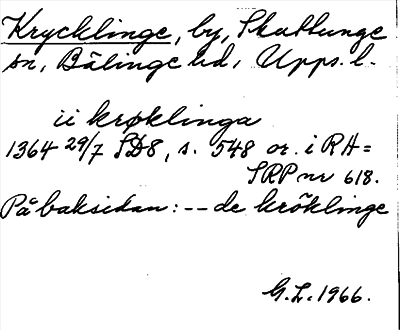 Krycklinge, by, Skuttunge
sn, Bälinge hd, Upps. l.
ii krøklinga
1364 29/7 SD8, s. 548 or. i RA =
SRP nr 618.
På baksidan: -- de kröklinge
G.L. 1966.